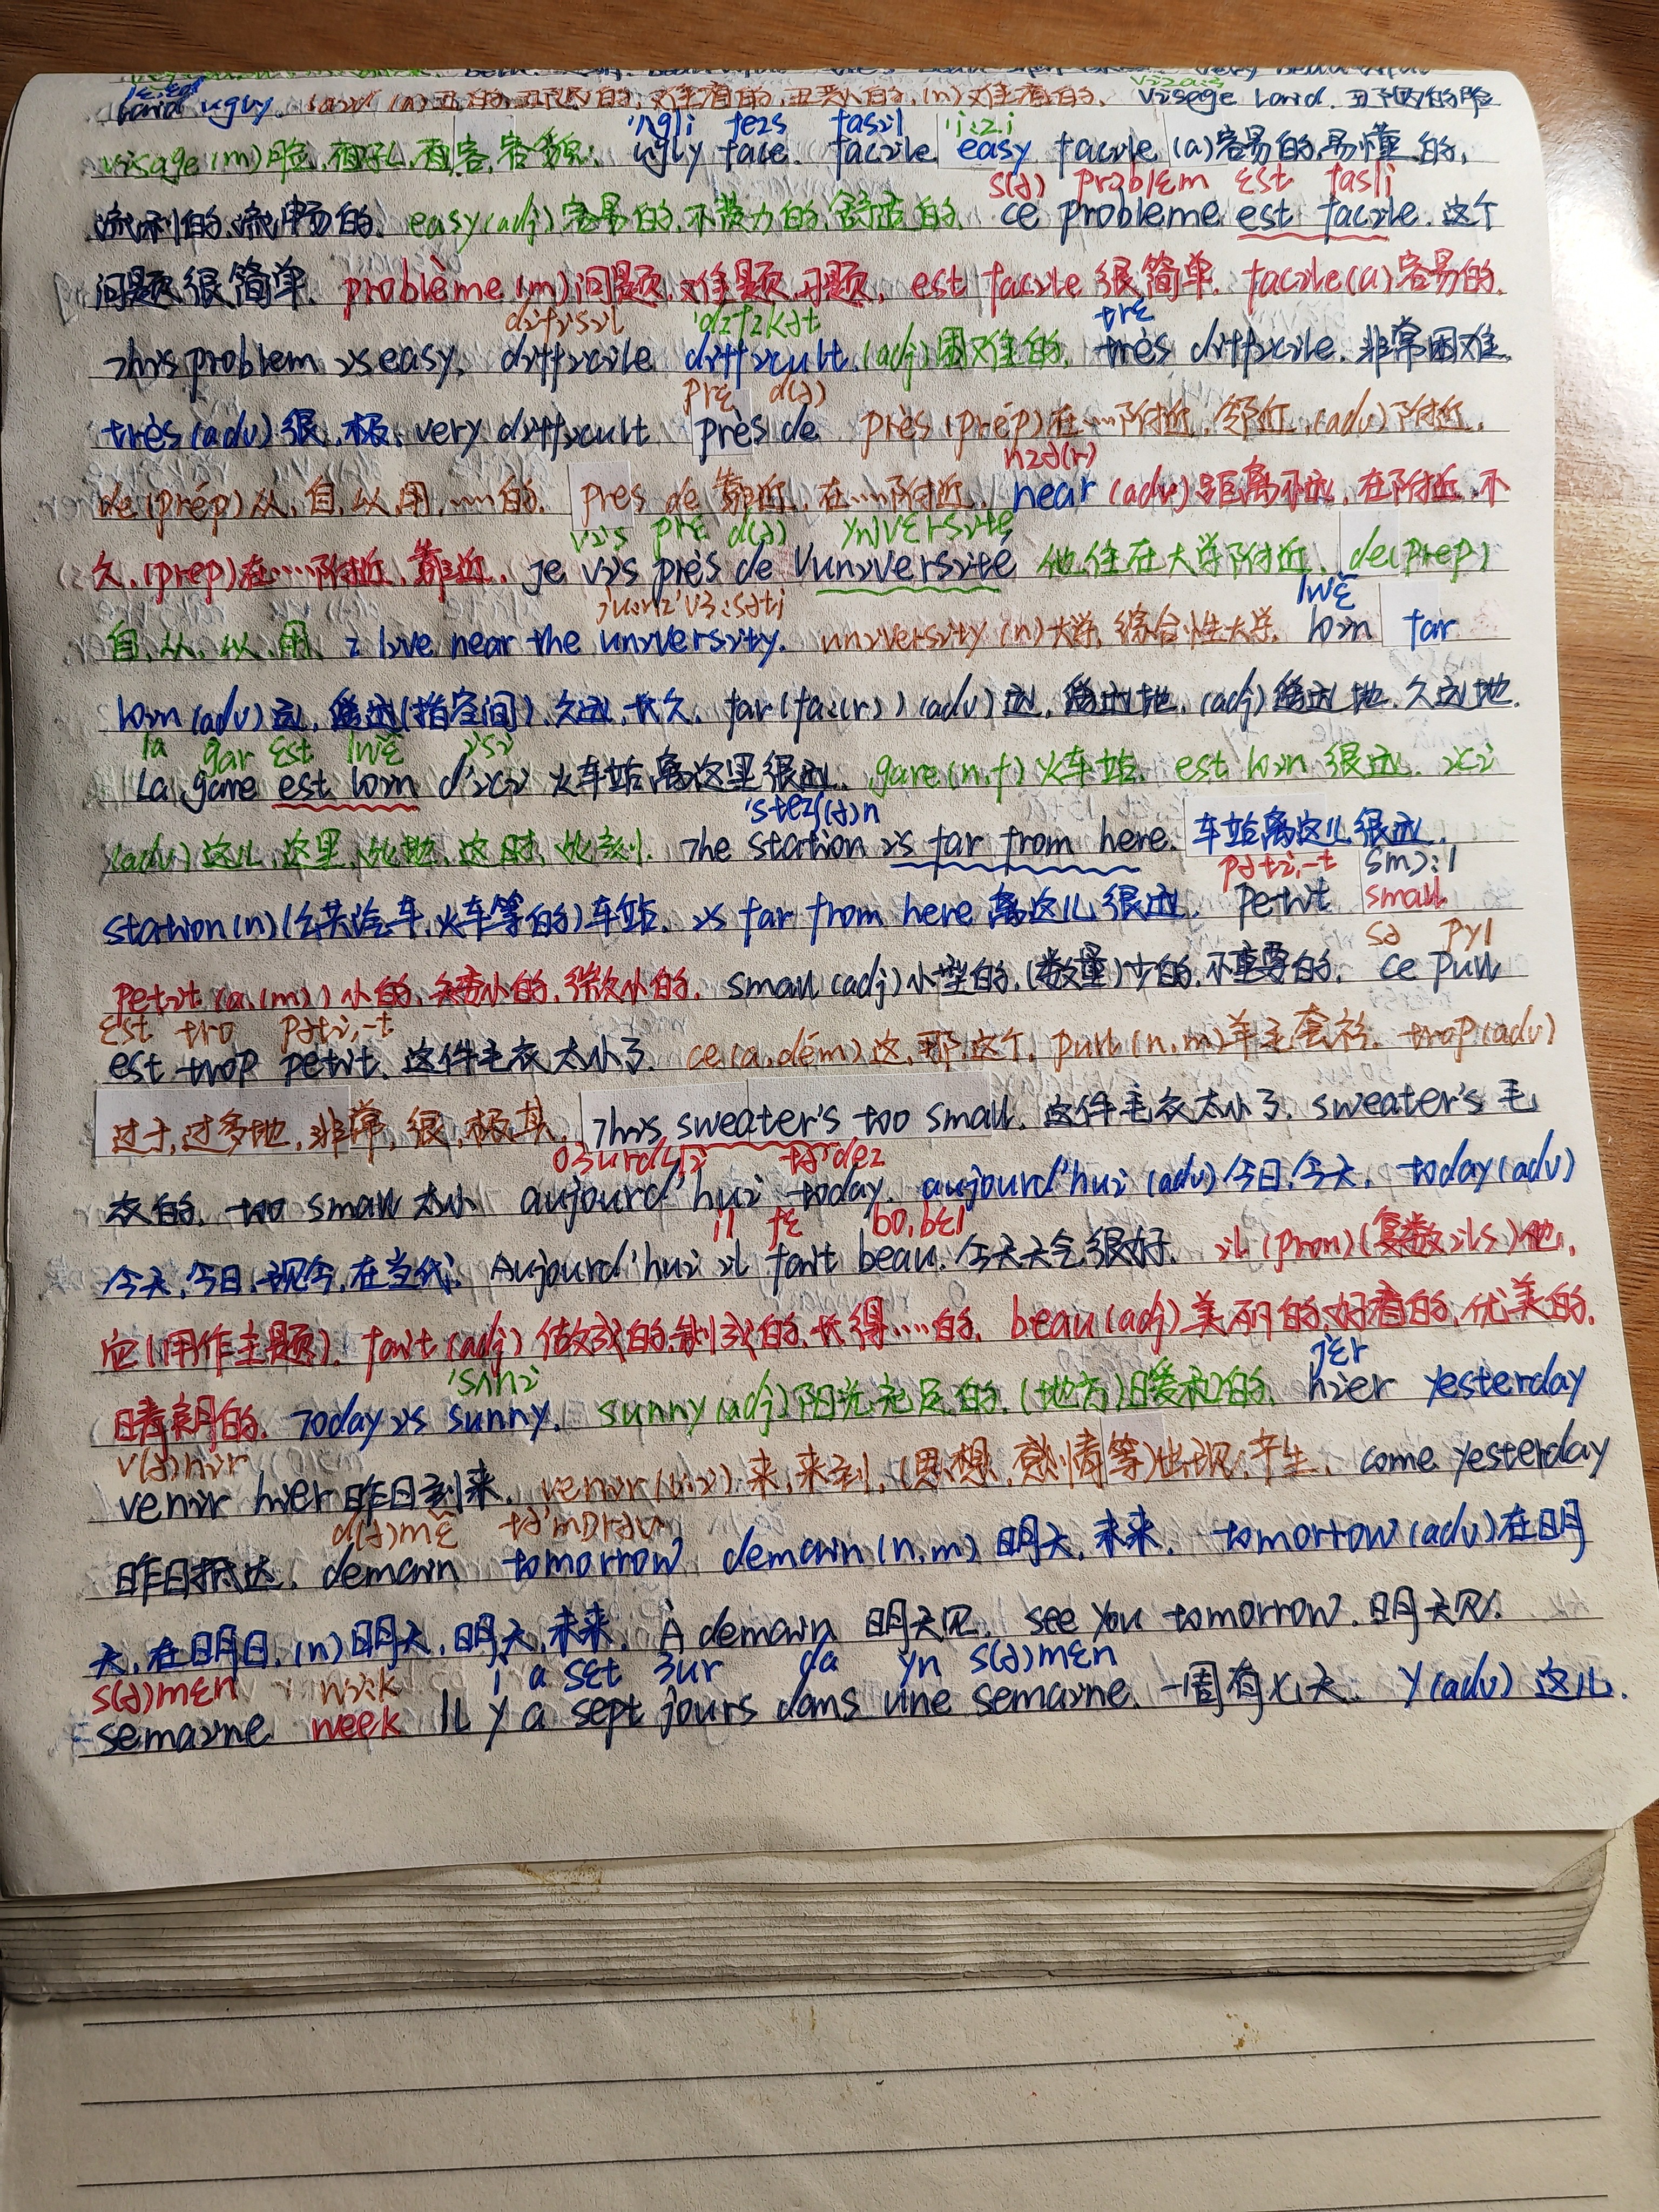 laid ugly. (a) 丑的, 丑陋的, 难看的, 丑恶的, (n) 难看的. visage laid. 丑陋的脸
'ʌgli feis fasil 'i:zi
visage (m) 脸, 面孔, 面容, 容貌. ugly face. facile easy facile (a) 容易的, 易懂的,
s(ə) prɔblɛm ɛst fasli
流利的, 流畅的. easy (adj) 容易的, 不费力的, 舒适的. ce probleme est facile. 这个
问题很简单. problème (m) 问题, 难题, 习题. est facile 很简单. facile (a) 容易的.
difisil 'difikət trɛ
This problem is easy. difficile difficult (adj) 困难的. très difficile. 非常困难
prɛ d(ə)
très (adv) 很, 极. very difficult près de près (prép) 在……附近, 邻近, (adv) 附近.
niə(r)
de (prép) 从, 自, 以, 用, ……的. pres de 靠近, 在……附近. near (adv) 距离不远, 在附近, 不
vis prɛ d(ə) ynivɛrsite
久. (prep) 在……附近, 靠近. je vis près de l'université 他住在大学附近. de (prép)
ju:ni'vɜ:səti lwɛ̃
自, 从, 以, 用. I live near the university. university (n) 大学, 综合性大学. loin far
loin (adv) 远, 遥远 (指空间), 久远, 长久. far (fa:(r)) (adv) 远, 遥远地, (adj) 遥远地, 久远地.
la gar ɛst lwɛ̃ isi
La gare est loin d'ici 火车站离这里很远. gare (n.f) 火车站. est loin 很远. ici
'steiʃ(ə)n
(adv) 这儿, 这里, 此地, 这时, 此刻. The station is far from here. 车站离这儿很远.
pəti,-t smɔ:l
station (n) (公共汽车, 火车等的) 车站. is far from here 离这儿很远. petit small
sə pyl
petit (a.(m)) 小的, 矮小的, 微小的. small (adj) 小型的, (数量) 少的, 不重要的. ce pull
ɛst tro pəti,-t
est trop petit. 这件毛衣太小了. ce (a.dém) 这, 那, 这个. pull (n.m) 羊毛套衫. trop (adv)
过于, 过多地, 非常, 很, 极其. This sweater's too small. 这件毛衣太小了. sweater's 毛
oʒurdɥi tərdei
衣的. too small 太小 aujourd'hui today. aujourd'hui (adv) 今日, 今天. today (adv)
il fɛ bo,bɛl
今天, 今日, 现今, 在当代. Aujourd'hui il fait beau. 今天天气很好. il (pron) (复数 ils) 他,
它 (用作主题). fait (adj) 做成的, 制成的, 长得……的. beau (adj) 美丽的, 好看的, 优美的,
'sʌni jɛr
晴朗的. Today is sunny. sunny (adj) 阳光充足的, (地方) 暖和的. hier yesterday
v(ə)nir
venir hier 昨日到来. venir (v.i) 来, 来到, (思想, 感情等) 出现, 产生. come yesterday
d(ə)mɛ̃ tə'mɒrəu
昨日抵达. demain tomorrow demain (n.m) 明天, 未来. tomorrow (adv) 在明
天, 在明日, (n) 明天, 明天, 未来. À demain 明天见. see you tomorrow. 明天见.
s(ə)mɛn wi:k i a sɛt ʒur da yn s(ə)mɛn
semaine week Il y a sept jours dans une semaine. 一周有七天. y (adv) 这儿.